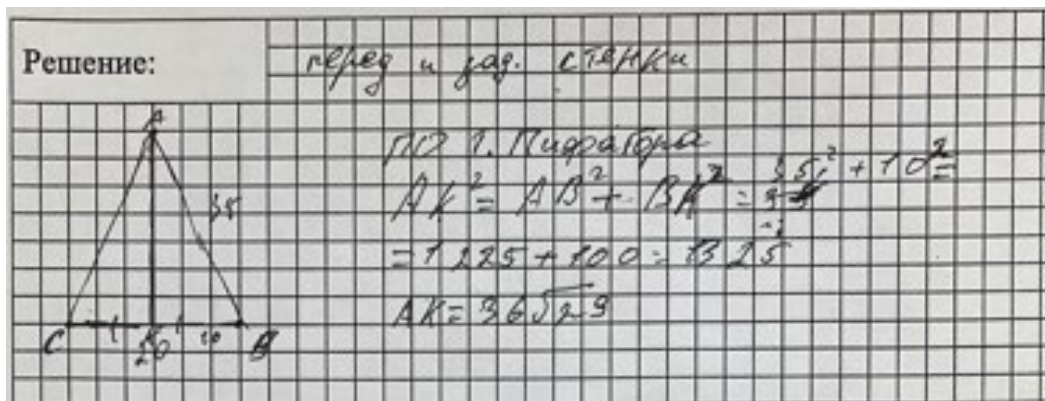 Решение:
перед и зад. стенки
A
35
C K B
20 10
по т. Пифагора
AK² = AB² + BK² = 35² + 10² =
= 1225 + 100 = 1325
AK = 36√29